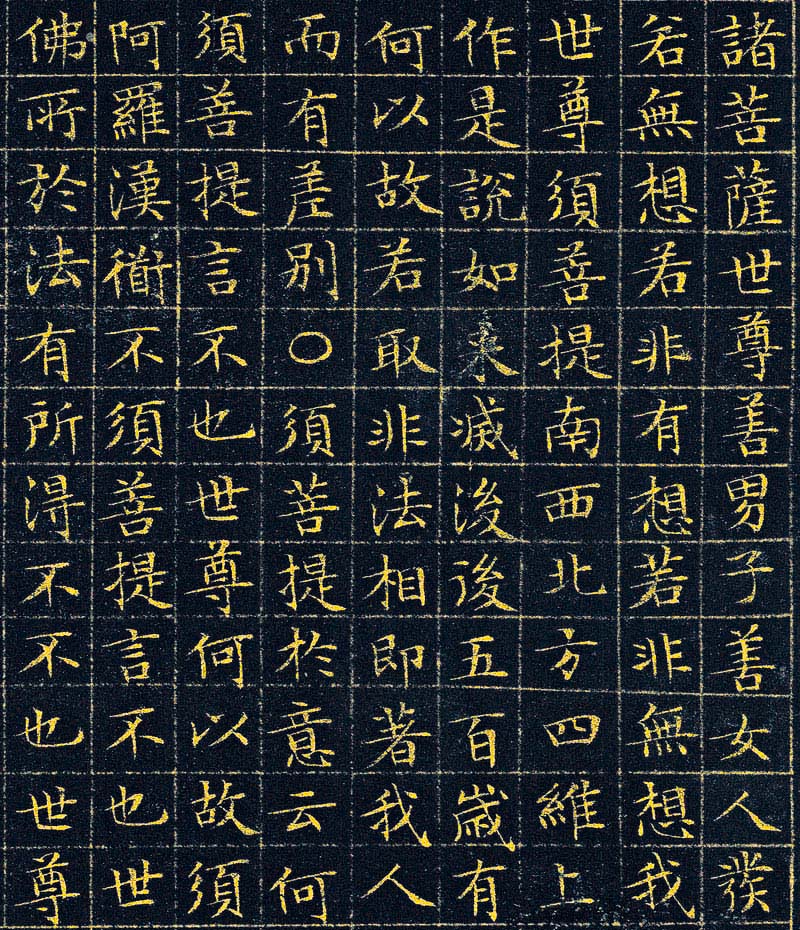 諸菩薩世尊善男子善女人發
若無想若非有想若非無想我
世尊須菩提南西北方四維上
作是說如来滅後後五百歲有
何以故若取非法相即著我人
而有差別○須菩提於意云何
須善提言不也世尊何以故須
阿羅漢衜不須菩提言不也世
佛所於法有所得不不也世尊